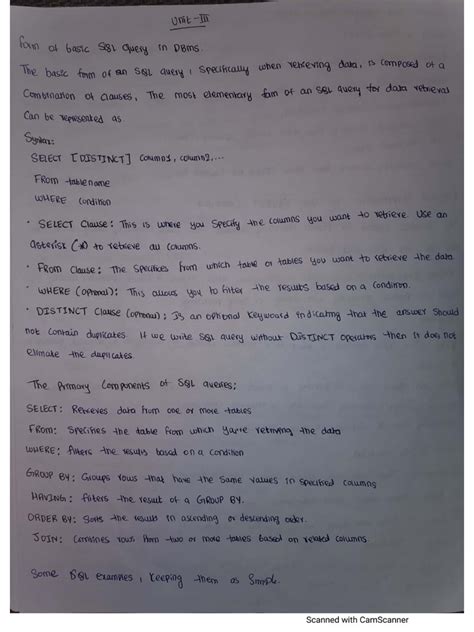 Unit-III
form of basic SQL Query in DBMS.
The basic form of an SQL query, specifically when retrieving data, is composed of a
Combination of clauses, The most elementary form of an SQL query for data retrieval
Can be represented as.
Syntax:
SELECT [DISTINCT] column1, column2,...
FROM tablename
WHERE Condition
• SELECT Clause: This is where you specify the columns you want to retrieve. Use an
asterisk (*) to retrieve all columns.
• FROM Clause: The specifies from which table or tables you want to retrieve the data
• WHERE (Optional): This allows you to filter the results based on a condition.
• DISTINCT Clause (optional): Is an optional keyword indicating that the answer should
not contain duplicates. If we write SQL query without DISTINCT operators then it does not
elimate the duplicates.
The Primary Components of SQL queries:
SELECT: Retrieves data from one or more tables
FROM: Specifies the table from which you're retriving the data
WHERE: filters the results based on a condition
GROUP BY: Groups rows that have the same values in specified columns
HAVING: filters the result of a GROUP BY.
ORDER BY: Sorts the results in ascending or descending order.
JOIN: Combines rows from two or more tables based on related columns.
Some SQL examples, keeping them as Simple.
Scanned with CamScanner